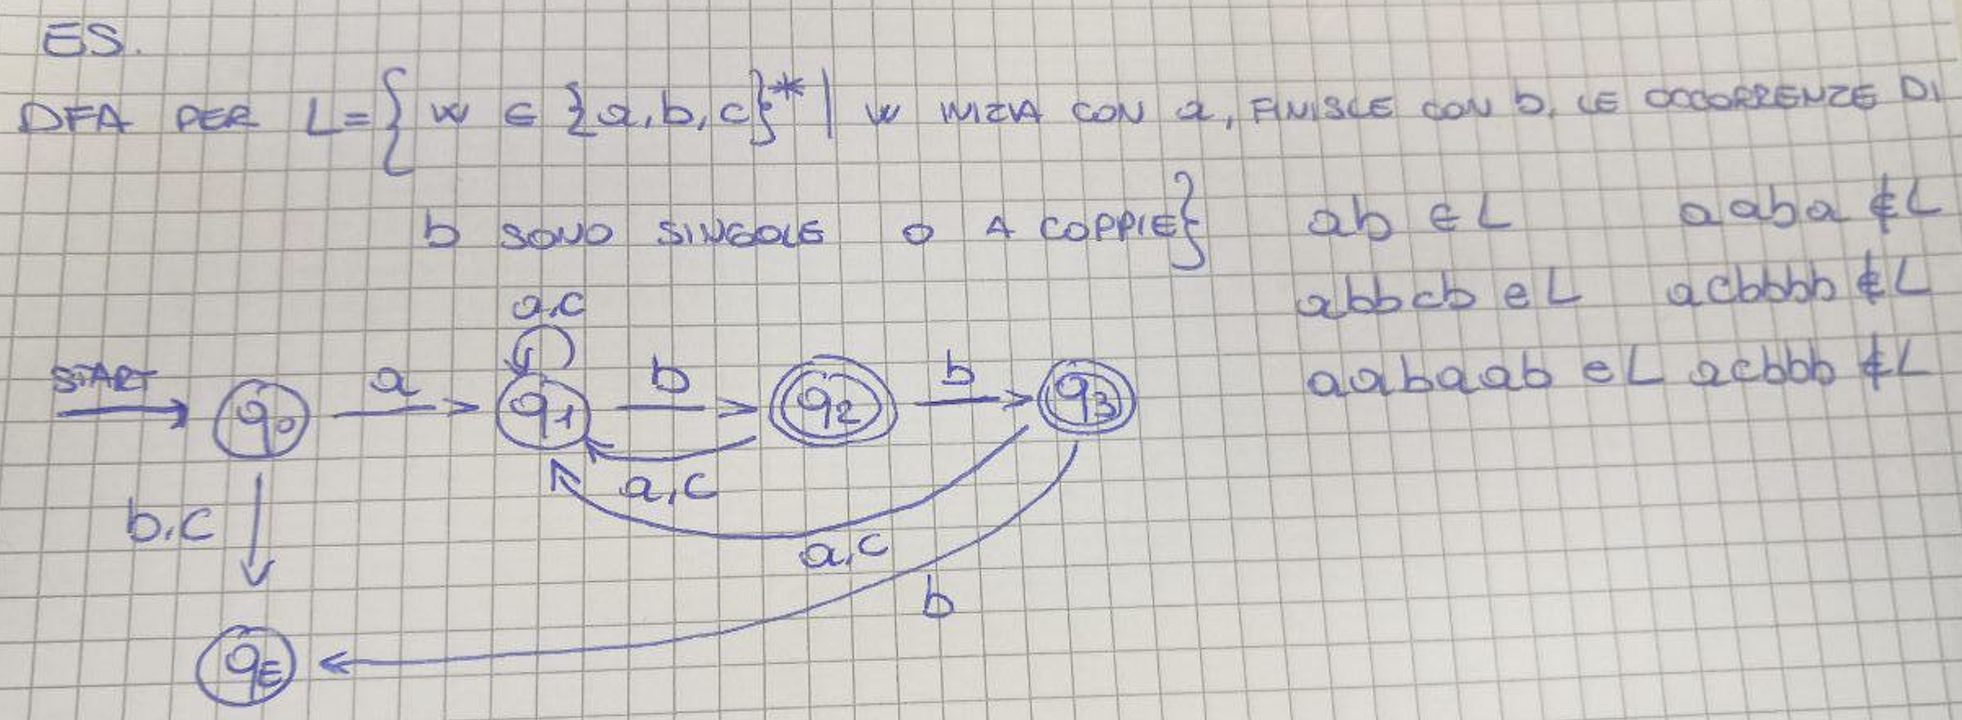 ES.
DFA PER L={ w ∈ {a,b,c}* | w INIZIA CON a, FINISCE CON b, LE OCCORRENZE DI
b SONO SINGOLE O A COPPIE}
ab ∈ L aaba ∉ L
abbcb ∈ L acbbbb ∉ L
aabaab ∈ L acbbb ∉ L
a,c
START a b b
q0 q1 q2 q3
a,c
b,c
a,c
b
qE